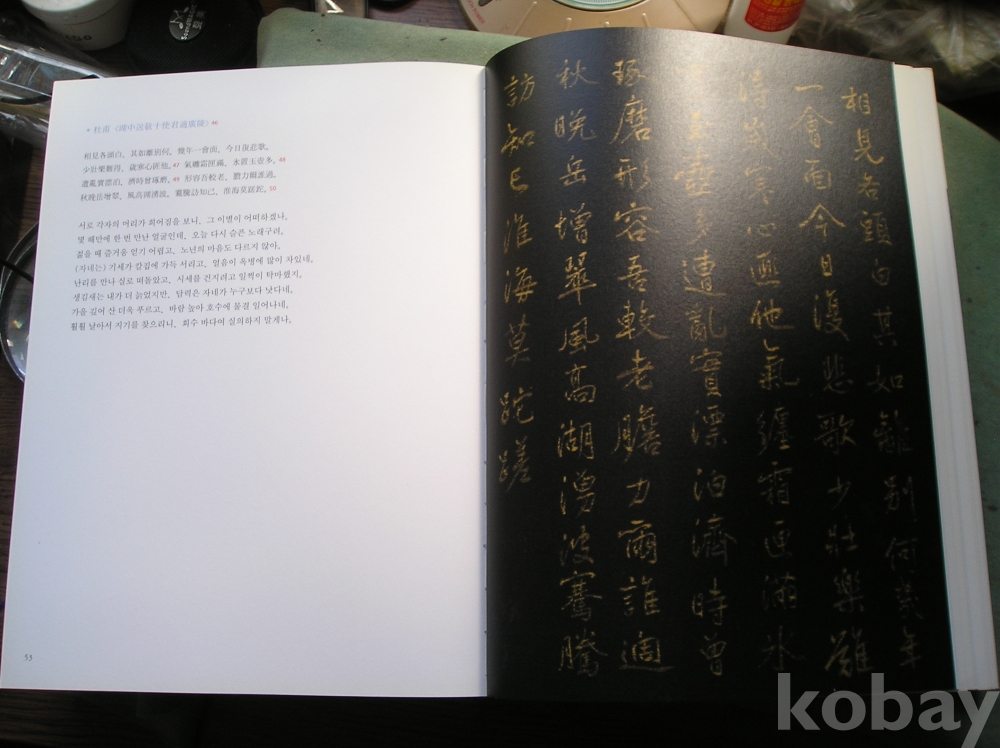 • 杜甫 〈湖中送敬十使君適廣陵〉46
相見各頭白、其如離別何。幾年一會面、今日復悲歌。
少壯樂難得、歲寒心匪他。47 氣纏霜匣滿、氷置玉壺多。48
遭亂實漂泊、濟時曾琢磨。49 形容吾較老、膽力爾誰過。
秋晚岳增翠、風高湖湧波。騫騰訪知己、淮海莫蹉跎。50
서로 각자의 머리가 희어짐을 보니, 그 이별이 어떠하겠나.
몇 해만에 한 번 만난 얼굴인데, 오늘 다시 슬픈 노래구려.
젊을 때 즐거움 얻기 어렵고, 노년의 마음도 다르지 않아.
(자네는) 기세가 칼집에 가득 서리고, 얼음이 옥병에 많이 차있네.
난리를 만나 실로 떠돌았고, 시세를 건지려고 일찍이 탁마했지.
생김새는 내가 더 늙었지만, 담력은 자네가 누구보다 낫다네.
가을 깊어 산 더욱 푸르고, 바람 높아 호수에 물결 일어나네.
훨훨 날아서 지기를 찾으리니, 회수 바다에 실의하지 말게나.
53
相見各頭白其如離別何幾年
一會面今日復悲歌少壯樂難
得歲寒心匪他氣纏霜匣滿氷
置玉壺多遭亂實漂泊濟時曾
琢磨形容吾較老膽力爾誰過
秋晚岳增翠風高湖湧波騫騰
訪知己淮海莫跎蹉
kobay